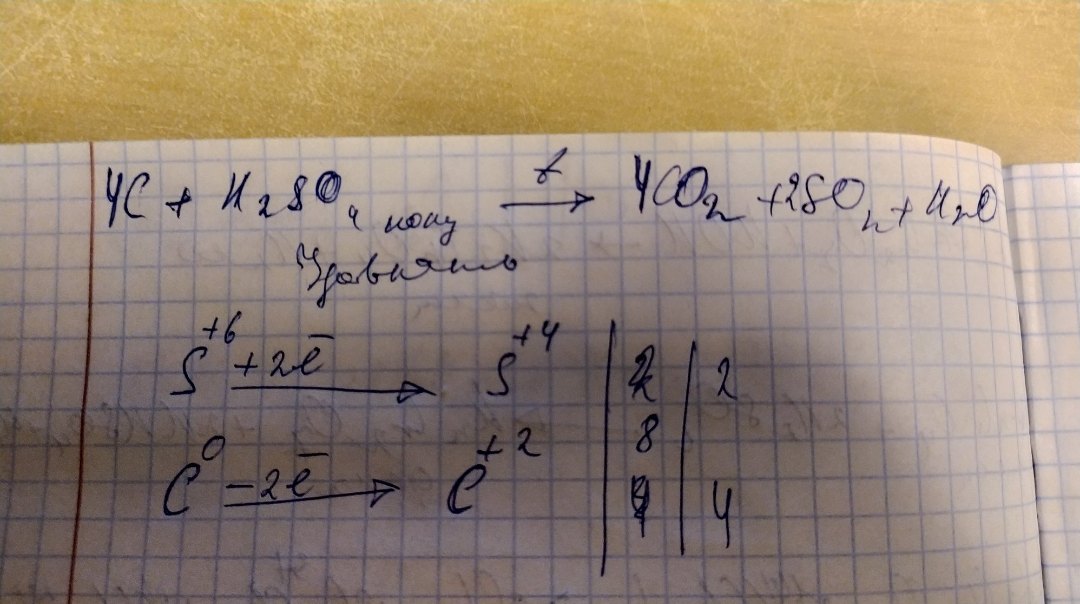 4C + H₂SO₄ конц —t→ 4CO₂ + 2SO₂ + H₂O
Уравнять
S⁺⁶ +2ē → S⁺⁴ | 2 | 2
8
C⁰ −2ē → C⁺² | 4 | 4